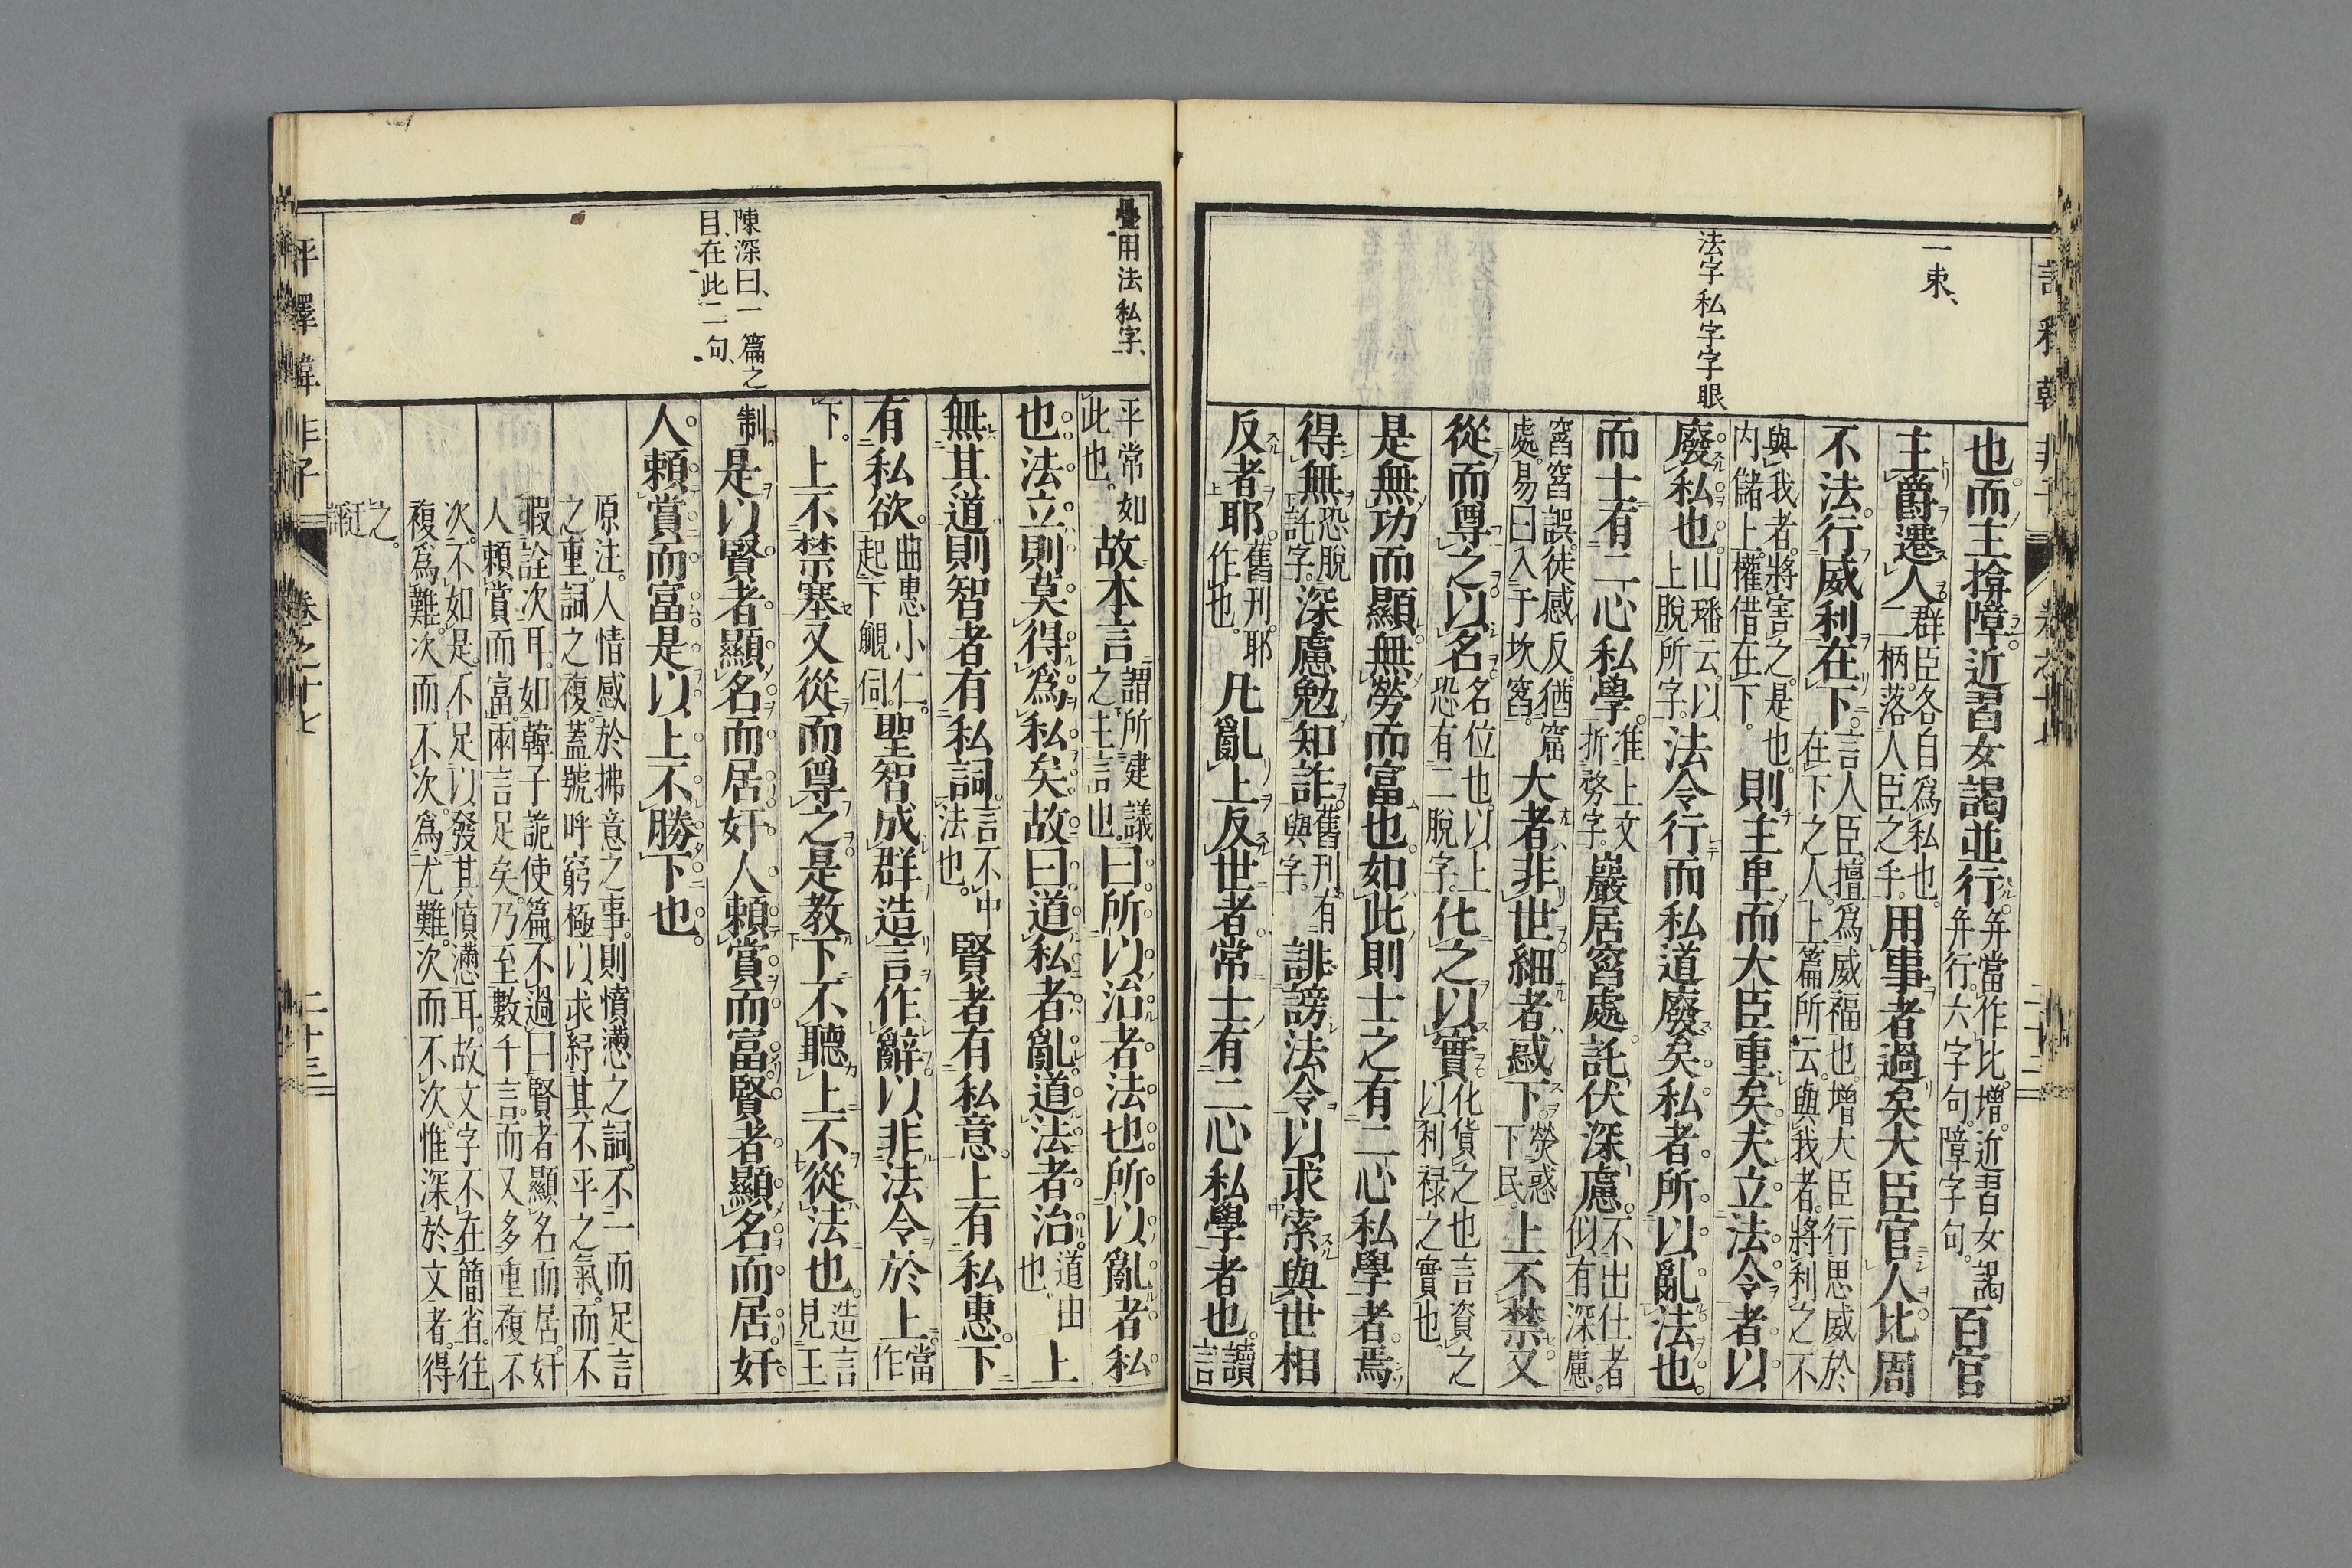 一束、
法字私字字眼
也而主揜障近習女謁並行弁當作比増近習女謁弁行六字句障字句百官
主爵遷人群臣各自爲私也二柄落人臣之手用事者過矣大臣官人比周
不法行威利在下言人臣擅爲威福也増大臣行思威於在下之人上篇所云與我者將利之不
與我者將害之是也内儲上權借在下則主卑而大臣重矣夫立法令者以
廢私也山璠云以上脫所字法令行而私道廢矣私者所以亂法也
而士有二心私學准上文折務字巖居窞處託伏深慮不出仕者似有深慮
窞窞誤徒感反猶窟處易曰入于坎窞大者非世細者惑下熒惑下民上不禁又
從而尊之以名名位也以上恐有二脫字化之以實化貨之也言資之以利禄之實也
是無功而顯無勞而富也如此則士之有二心私學者焉
得無恐脫託字深慮勉知詐舊刊有與字誹謗法令以求索與世相
反者耶舊刊耶作也凡亂上反世者常士有二心私學者也讀言
疊用法私字、
陳深曰、一篇之
目在此二句、
平常如此也故本言謂所建議之主言也曰所以治者法也所以亂者私
也法立則莫得爲私矣故曰道私者亂道法者治道由也上
無其道則智者有私詞言不中法也賢者有私意上有私惠下
有私欲曲惠小仁起下覬伺聖智成群造言作辭以非法令於上當作
下上不禁塞又從而尊之是教下不聽上不從法也造言見王
制是以賢者顯名而居奸人賴賞而富賢者顯名而居奸
人賴賞而富是以上不勝下也
原注人情感於拂意之事則憤懣之詞不一而足言
之重詞之複蓋號呼窮極以求紓其不平之氣而不
暇詮次耳如韓子詭使篇不過曰賢者顯名而居奸
人賴賞而富兩言足矣乃至數千言而又多重複不
次不如是不足以發其憤懣耳故文字不在簡省往
複爲難次而不次爲尤難次而不次惟深於文者得
之
卷之十七
二十三